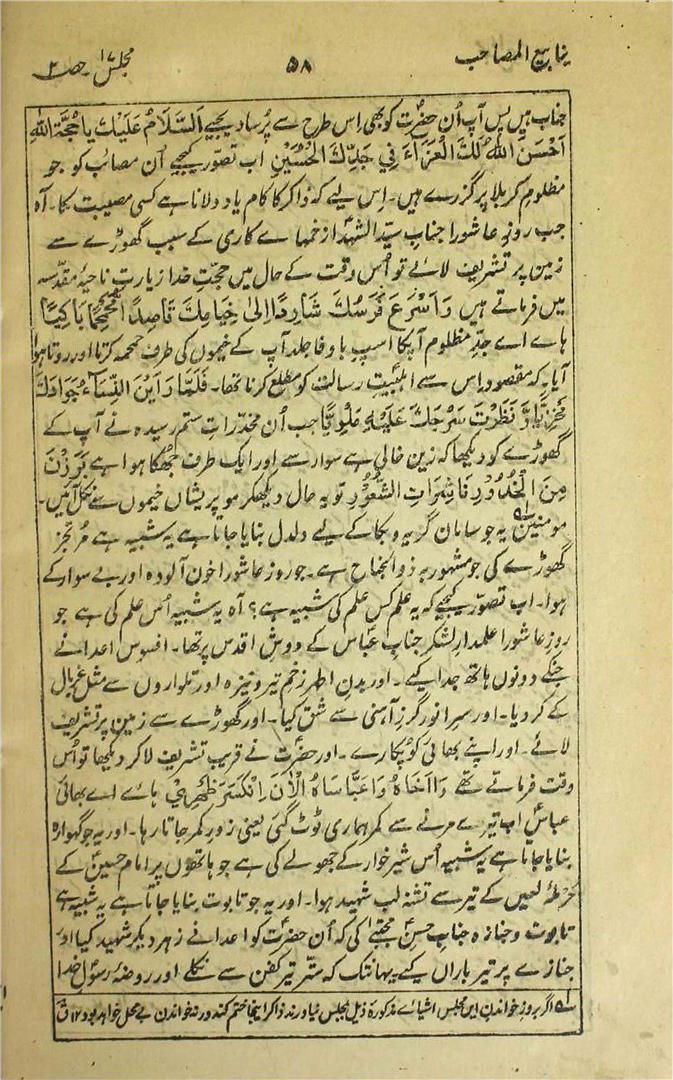 ینابیع المصاحب ۵۸ مجلس ۱۷ حصہ ۲
جناب ہیں پس آپ اُن حضرتؑ کو بھی اِس طرح سے پُرسا دیجیے اَلسَّلَامُ عَلَیْكَ یَا حُجَّةَ اللّٰهِ
اَحْسَنَ اللّٰهُ لَكَ الْعَزَآءَ فِي جَدِّكَ الْحُسَیْنِ اب تصوّر کیجیے اُن مصائب کو جو
مظلومِ کربلا پر گزرے ہیں۔ اِس لیے کہ ذاکر کا کام یاد دلانا ہے کسی مصیبت کا۔ آہ
جب روزِ عاشورا جنابِ سیّد الشہدا زخمہاے کاری کے سبب گھوڑے سے
زمین پر تشریف لائے تو اُس وقت کے حال میں حجّتِ خدا زیارتِ ناحیۂ مقدسہ
میں فرماتے ہیں وَاَسْرَعَ فَرَسُكَ شَارِدًا اِلیٰ خِیَامِكَ قَاصِدًا مُحَمْحِمًا بَاكِیًا
ہاے اے جدِّ مظلوم آپکا اسپِ باوفا جلد آپ کے خیموں کی طرف حمحمہ کرتا اور روتا ہوا
آیا۔ کہ مقصود اِس سے اہلبیتِ رسالت کو مطلع کرنا تھا۔ فَلَمَّا رَاَیْنَ النِّسَآءُ جَوَادَكَ
مَخْزِیًّا وَّ نَظَرْتَ سَرْجَكَ عَلَیْهِ مَلْوِیًّا جب اُن مخدّراتِ ستم رسیدہ نے آپ کے
گھوڑے کو دیکھا کہ زین خالی ہے سوار سے اور ایک طرف جھُکا ہوا ہے بَرَزْنَ
مِنَ الْخُدُوْرِ نَاشِرَاتِ الشُّعُوْرِ تو یہ حال دیکھکر مو پریشاں خیموں سے نکل آئیں۔
مومنین یہ جو سامان گریہ و بکا کے لیے دلدل بنایا جاتا ہے یہ شبیہ ہے مُرتجز
گھوڑے کی جو مشہور بہ ذوالجناح ہے۔ جو روزِ عاشورا خون آلودہ اور بے سوار کے
ہوا۔ اب تصوّر کیجیے کہ یہ علم کس علم کی شبیہ ہے؟ آہ یہ شبیہ اُس علم کی ہے جو
روزِ عاشورا علمدارِ لشکر جنابِ عبّاس کے دوشِ اقدس پر تھا۔ افسوس اعدا نے
جنکے دونوں ہاتھ جدا کیے۔ اور بدنِ اطہر زخمِ تیر و نیزہ اور تلواروں سے مثلِ غربال
کے کر دیا۔ اور سرِ انور گرزِ آہنی سے شق کیا۔ اور گھوڑے سے زمین پر تشریف
لائے۔ اور اپنے بھائی کو پُکارے۔ اور حضرتؑ نے قریب تشریف لا کر دیکھا تو اُس
وقت فرماتے تھے وَااَخَاہُ وَاعَبَّاسَاہُ اَلْاٰنَ اِنْكَسَرَ ظَهْرِيْ ہاے اے بھائی
عباسؑ اب تیرے مرنے سے کمر ہماری ٹوٹ گئی یعنی زورِ کمر جاتا رہا۔ اور یہ جو گہوارہ
بنایا جاتا ہے یہ شبیہ اُس شیر خوار کے جھولے کی ہے جو ہاتھوں پر امام حسینؑ کے
حرملۂ لعیں کے تیر سے تشنہ لب شہید ہوا۔ اور یہ جو تابوت بنایا جاتا ہے یہ شبیہ ہے
تابوت و جنازہ جناب حسنِ مجتبےٰ کی کہ اُن حضرتؑ کو اعدا نے زہر دیکر شہید کیا اور
جنازے پر تیر باراں کیے یہانتک کہ ستّر تیر کفن سے نکلے اور روضۂ رسولِ خدا
اگر بروزِ خواندنِ این مجلس اشیاے مذکورۂ ذیل مجلس نیاورند ذاکر اینجا ختم کند ورنہ خواندن بے محل خواہد بود ۱۲